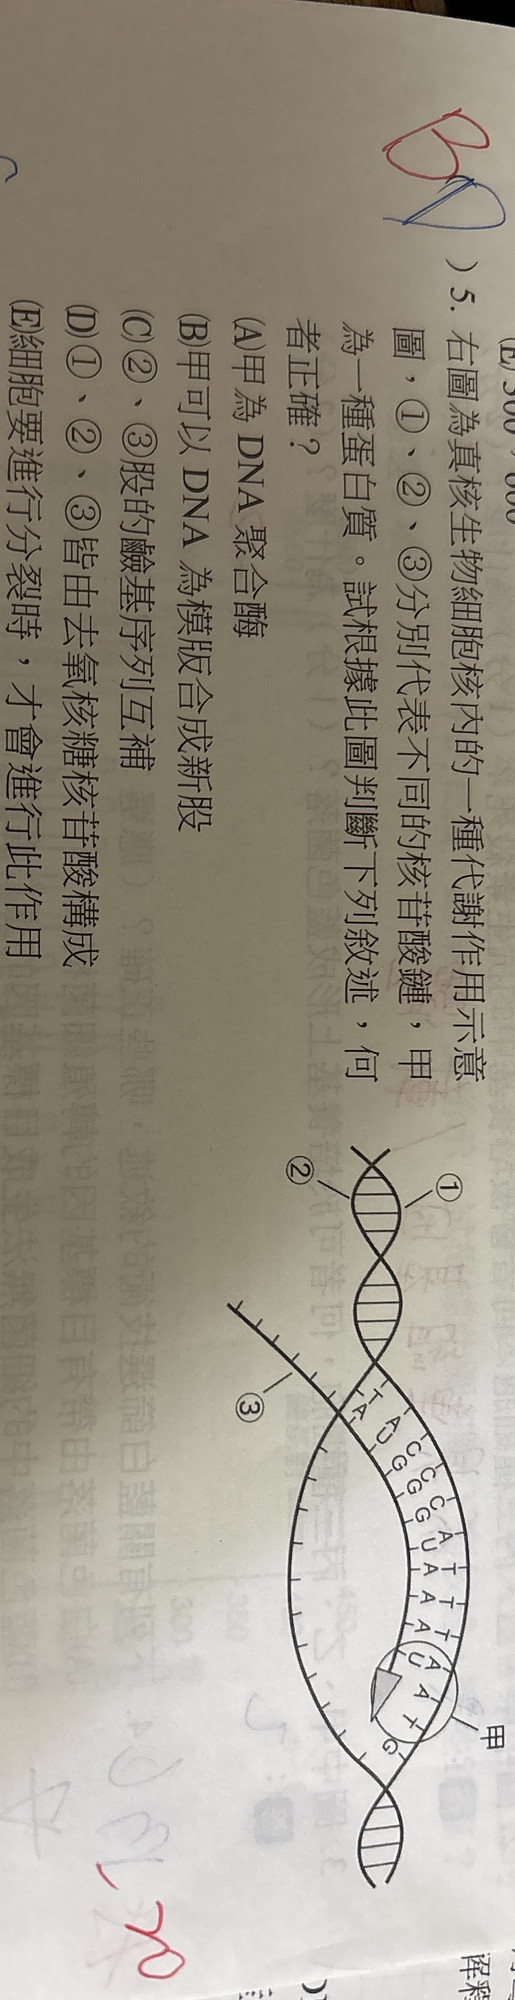 (E) 300，600
BD
) 5. 右圖為真核生物細胞核內的一種代謝作用示意
圖，①、②、③分別代表不同的核苷酸鏈，甲
為一種蛋白質。試根據此圖判斷下列敘述，何
者正確？
(A)甲為 DNA 聚合酶
(B)甲可以 DNA 為模版合成新股
(C)②、③股的鹼基序列互補
(D)①、②、③皆由去氧核糖核苷酸構成
(E)細胞要進行分裂時，才會進行此作用
①
②
③
甲
T A C C C A T T T A A T G
A U G G G U A A A U